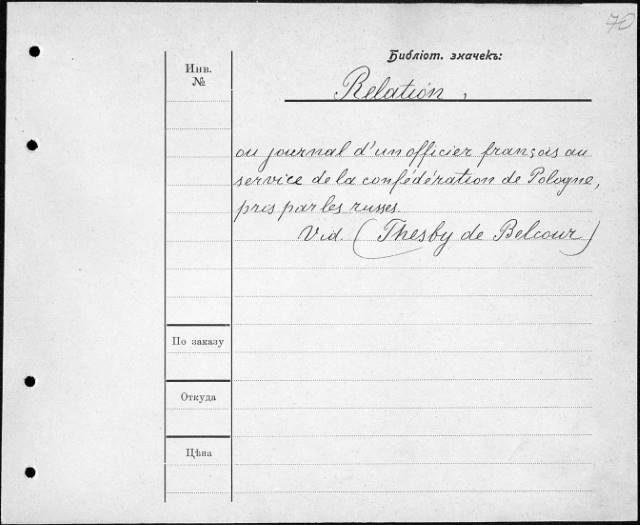 70
Библіот. значекъ:
Инв.
№
Relation,
ou journal d'un officier français au
service de la confédération de Pologne,
pris par les russes.
Vid. (Thesby de Belcour)
По заказу
Откуда
Цѣна